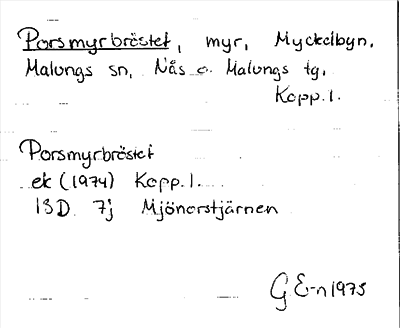 Porsmyrbröstet, myr, Myckelbyn,
Malungs sn, Nås o. Malungs tg,
Kopp. l.
Porsmyrbröstet
ek (1974) Kopp. l.
13D 7j Mjönerstjärnen
G E-n 1975